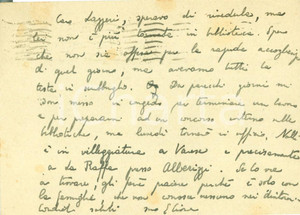 Caro Lazzeri, speravo di rivederla, ma
lei non è più tornato in biblioteca. Spero
che non si offese per la rapida accoglienza
di quel giorno, ma avevamo tutti la
testa in subbuglio. Da parecchi giorni mi
sono messo in congedo per terminare un lavoro
e per prepararmi ad un concorso interno alle
biblioteche, ma lunedì tornerò in ufficio.
è in villeggiatura a Varese e precisamente
a la Rasa presso Alberizzi. Se lo va
a trovare, gli farà piacere perché è solo con
la famiglia che non conosce nessuno nei
Cordiali saluti suo